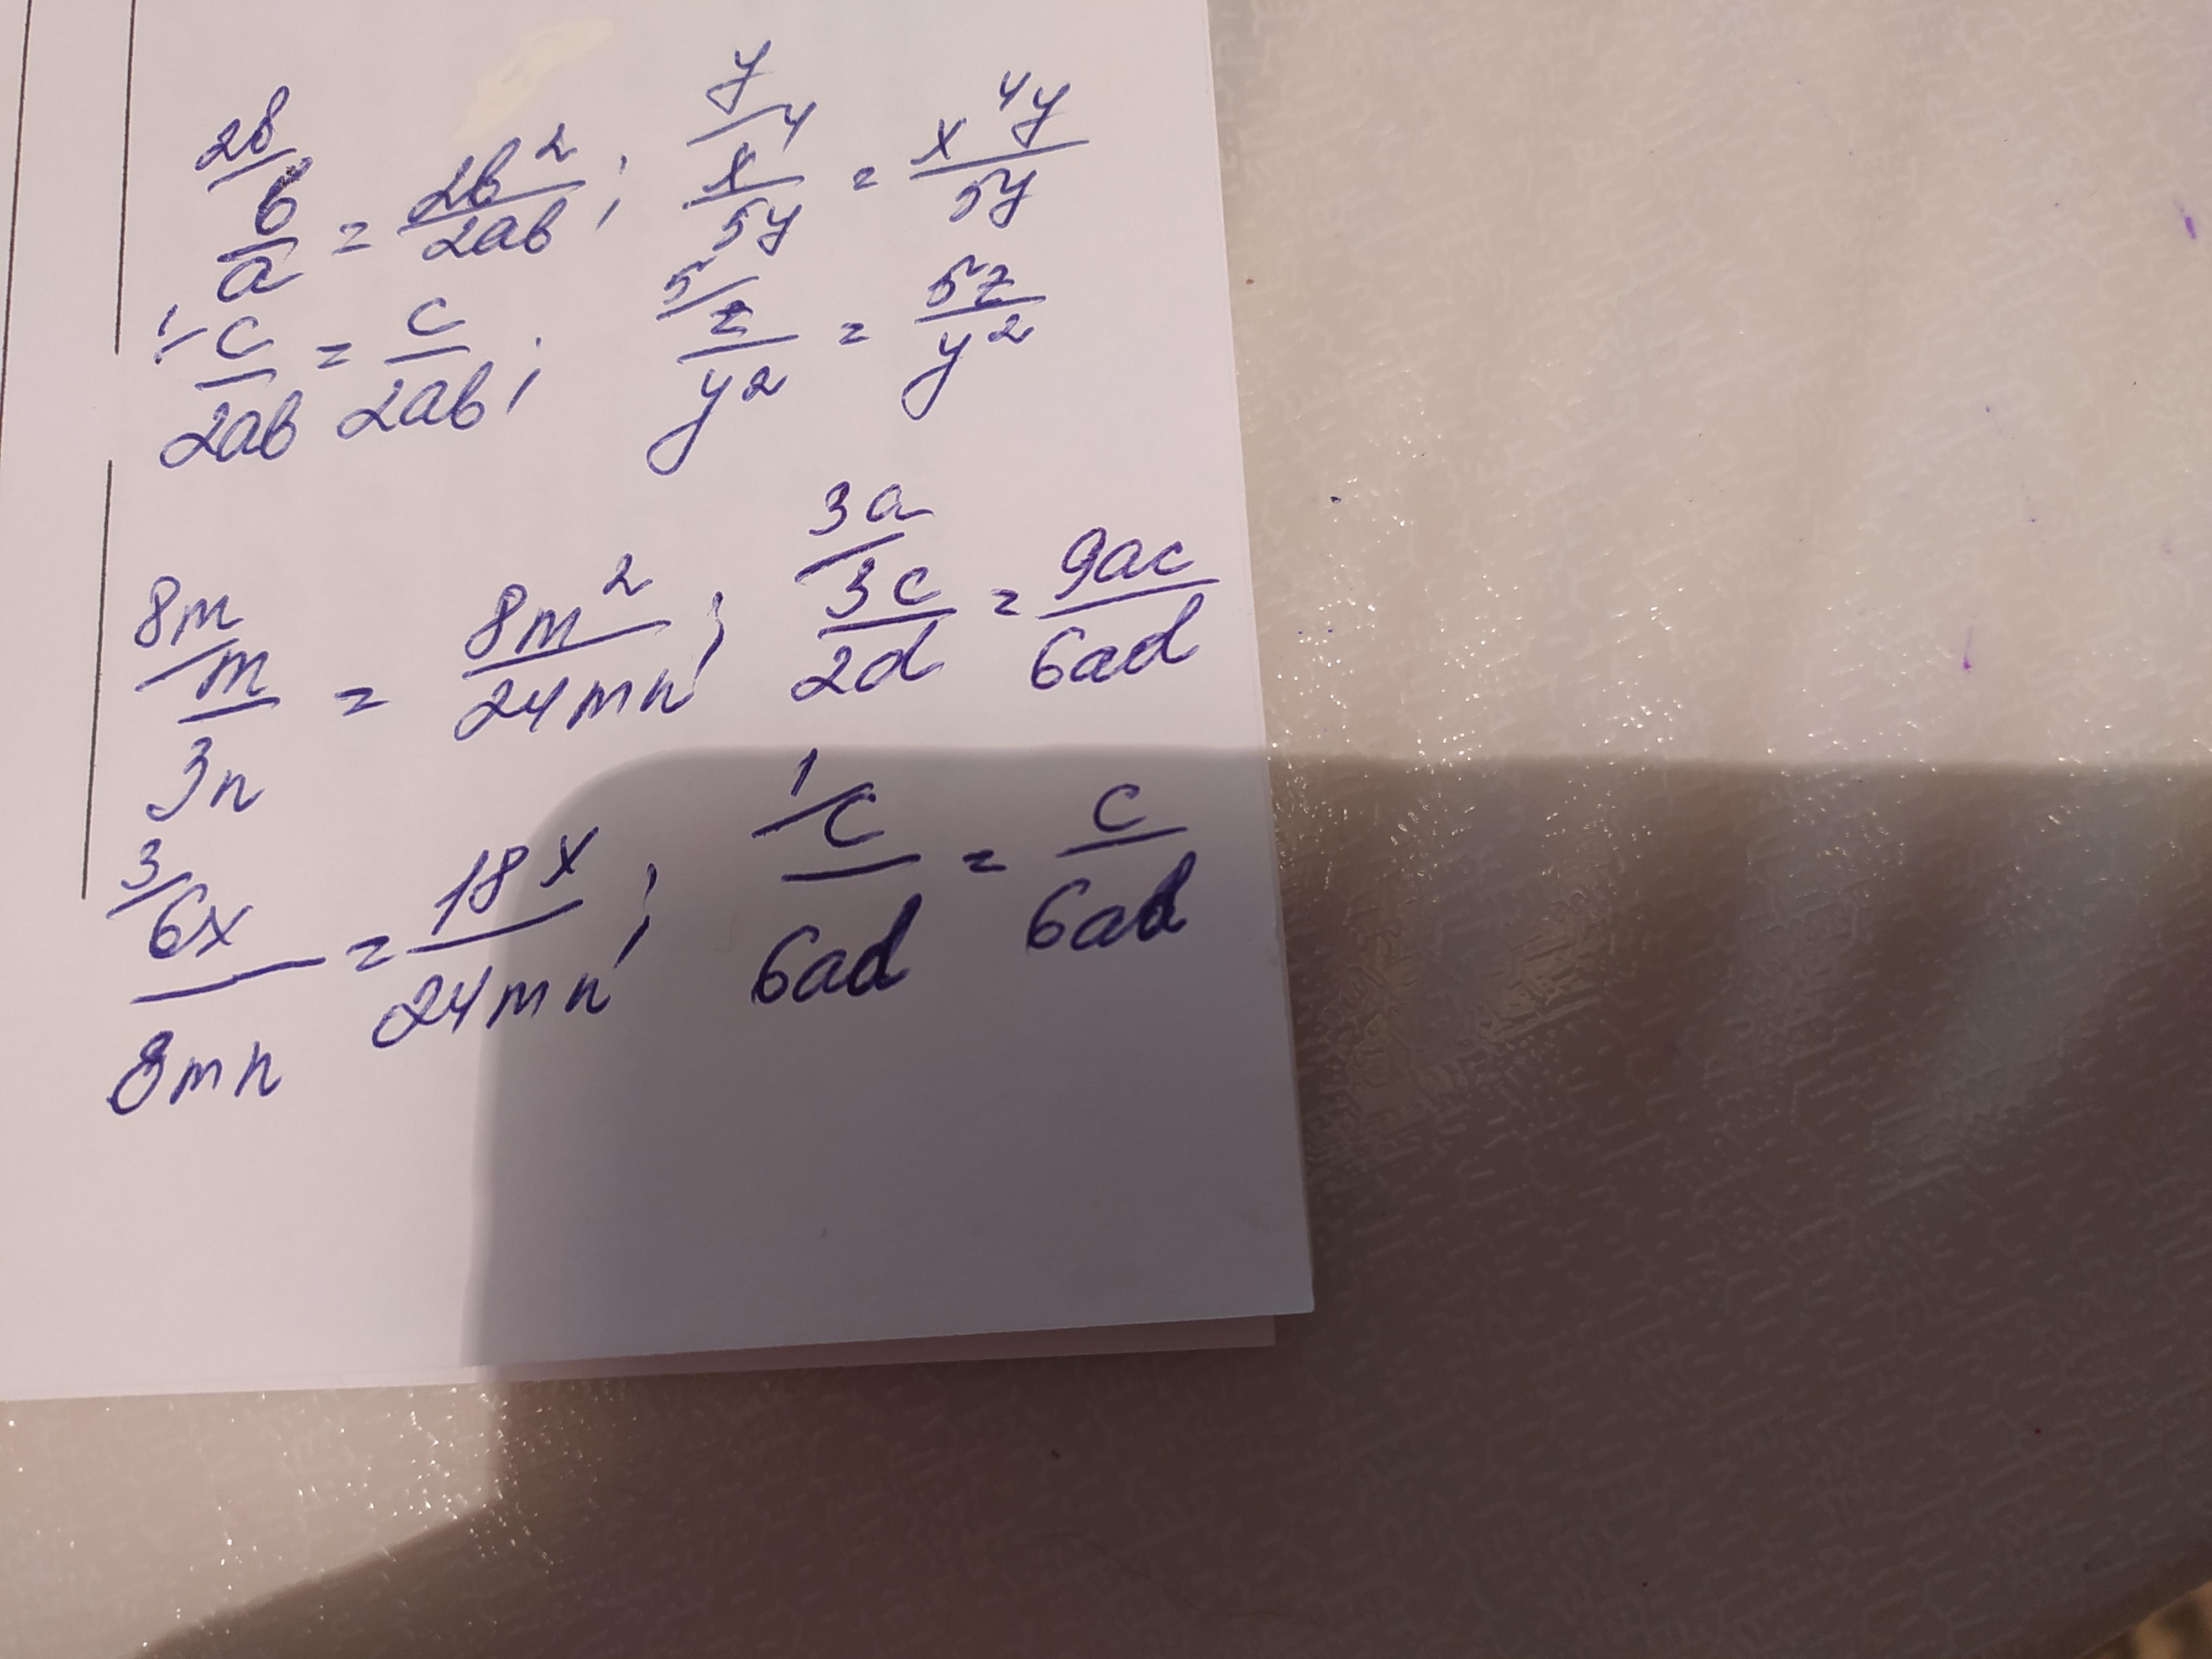 2b/ b/a = 2b²/2ab ; y/ x⁴/5y = x⁴y/5y
1/ c/2ab = c/2ab ; 5/ z/y² = 5z/y²
8m/ m/3n = 8m²/24mn ; 3a/ 3c/2d = 9ac/6ad
3/ 6x/8mn = 18x/24mn ; 1/ c/6ad = c/6ad